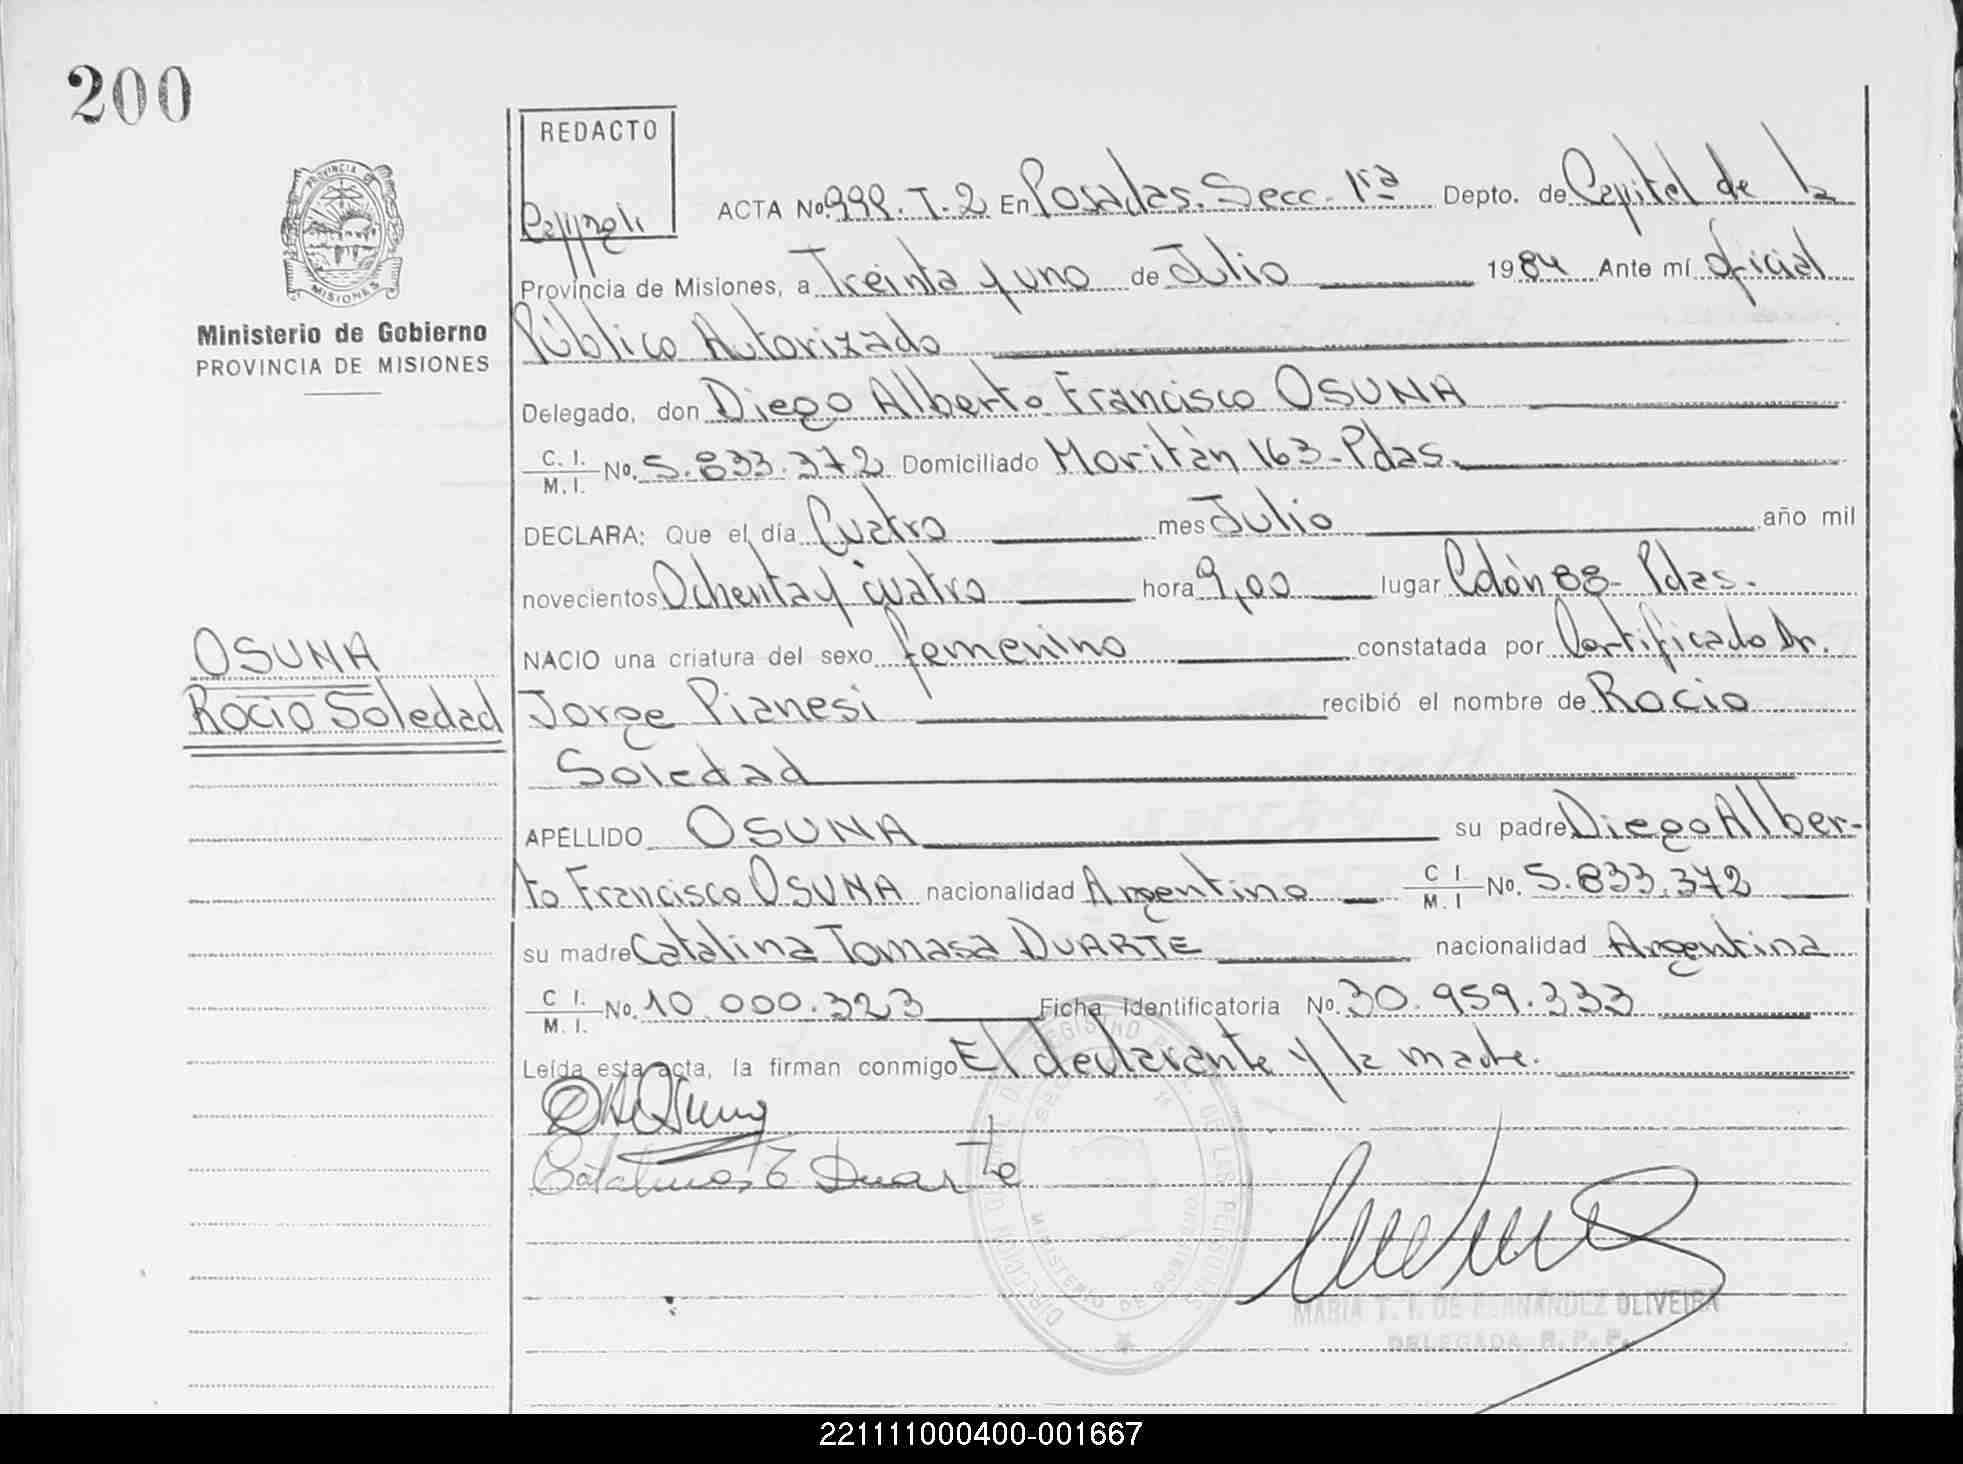 200
PROVINCIA DE
MISIONES
Ministerio de Gobierno
PROVINCIA DE MISIONES
OSUNA
Rocio Soledad
REDACTO
ACTA No. 998. T. 2 En Posadas. Secc. 1ra Depto. de Capital de la
Provincia de Misiones, a Treinta y uno de Julio 1984 Ante mí oficial
Público Autorizado
Delegado, don Diego Alberto Francisco OSUNA
C. I.
M. I. No. 5.833.372 Domiciliado Moritán 163-Pdas.
DECLARA: Que el día Cuatro mes Julio año mil
novecientos Ochenta y cuatro hora 9,00 lugar Colón 88- Pdas.
NACIO una criatura del sexo femenino constatada por Certificado Dr.
Jorge Pianesi recibió el nombre de Rocio
Soledad
APELLIDO OSUNA su padre Diego Alber-
to Francisco OSUNA nacionalidad Argentino C I.
M. I No. 5.833.372
su madre Catalina Tomasa DUARTE nacionalidad Argentina
C I.
M. I. No. 10.000.323 Ficha identificatoria No. 30.959.333
Leída esta acta, la firman conmigo El declarante y la madre.
Catalina T Duarte
MINISTERIO DE GOBIERNO
MARIA T. T. DE FERNANDEZ OLIVEIRA
DELEGADA R. P. P.
221111000400-001667